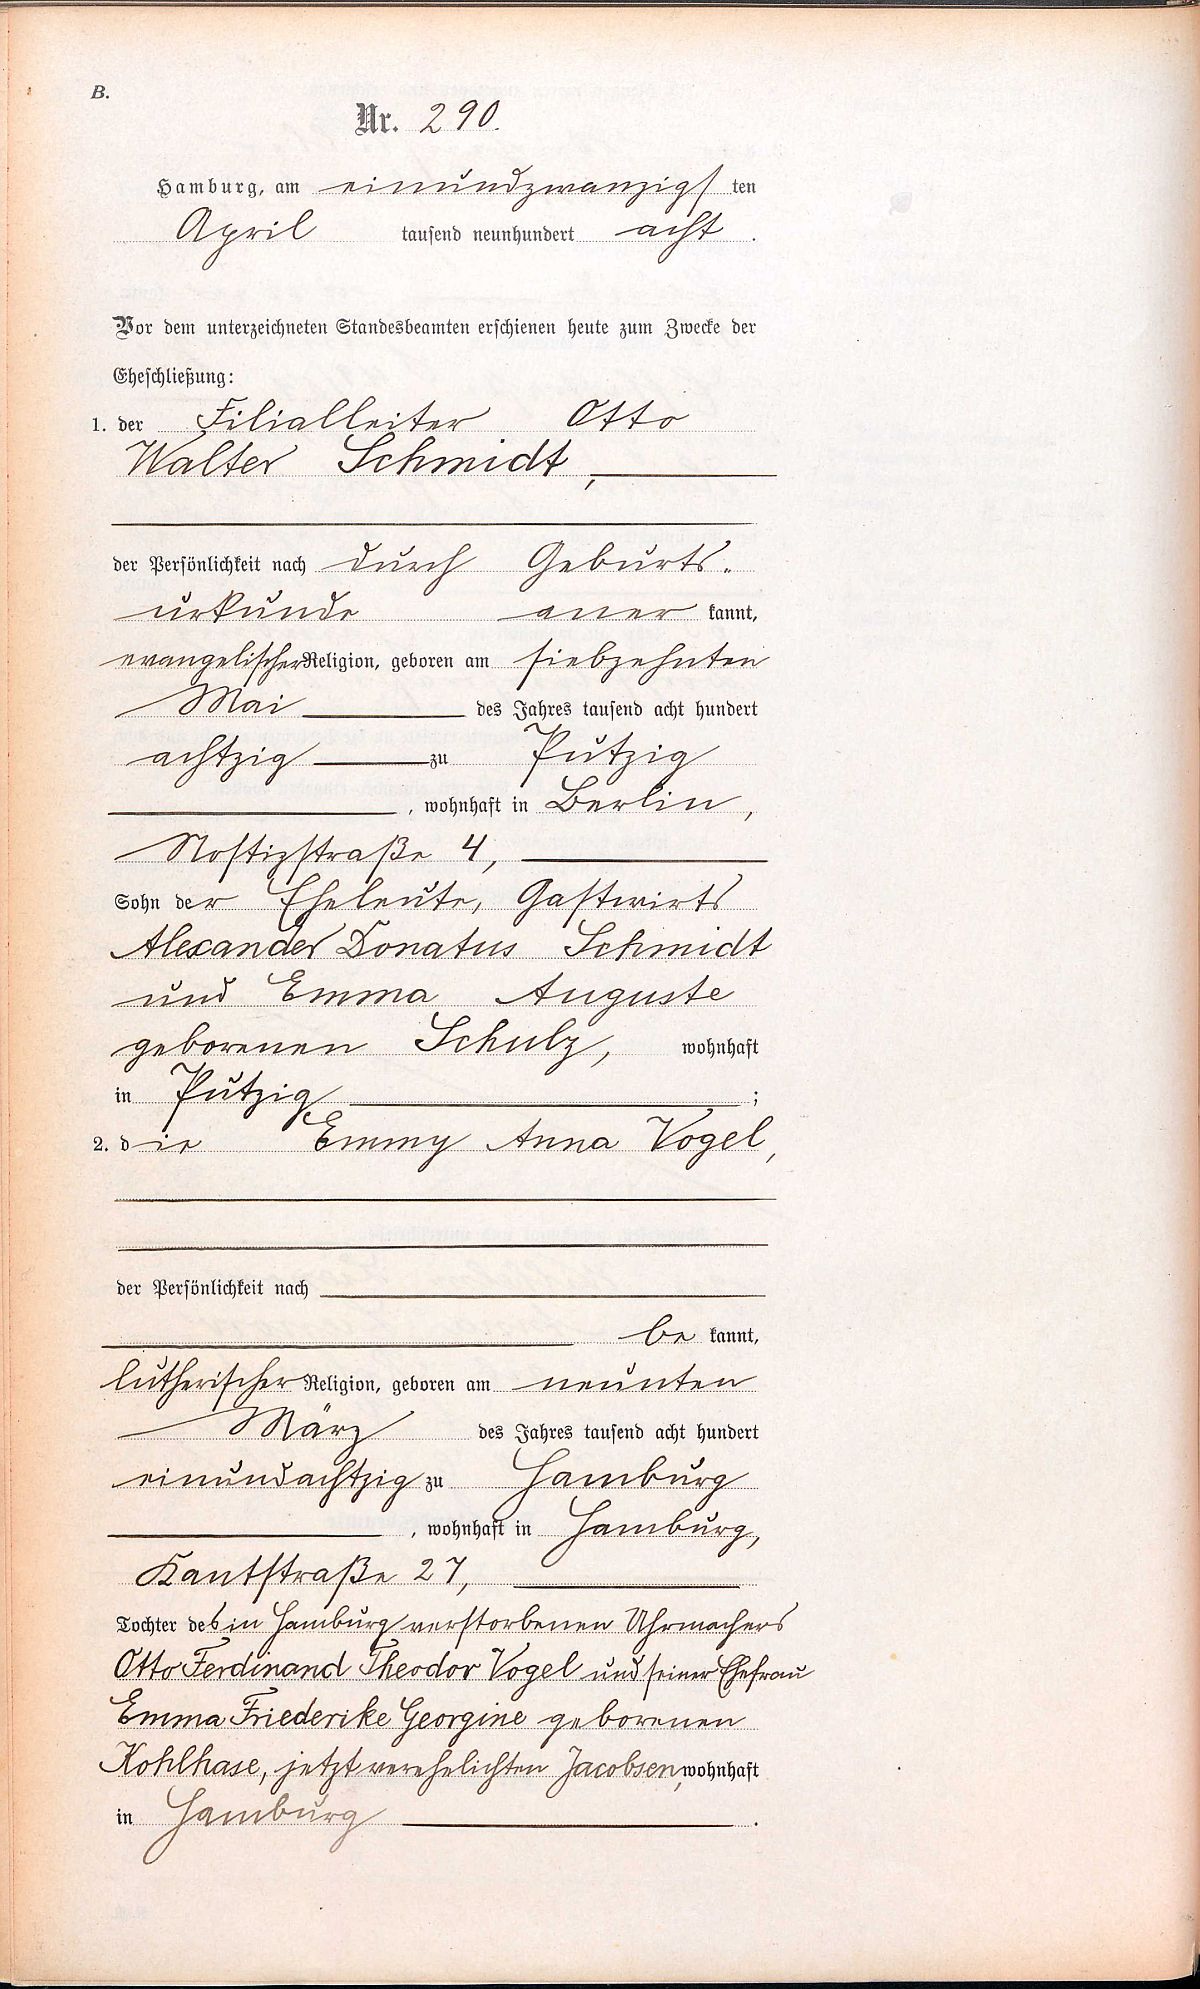 B.
Nr. 290.
Hamburg, am einundzwanzigsten
April tausend neunhundert acht.
Vor dem unterzeichneten Standesbeamten erschienen heute zum Zwecke der
Eheschließung:
1. der Filialleiter Otto
Walter Schmidt,
der Persönlichkeit nach durch Geburts-
urkunde aner kannt,
evangelischer Religion, geboren am siebzehnten
Mai des Jahres tausend acht hundert
achtzig zu Putzig
, wohnhaft in Berlin,
Nostizstraße 4,
Sohn der Eheleute, Gastwirts
Alexander Donatus Schmidt
und Emma Auguste
geborenen Schulz, wohnhaft
in Putzig ;
2. die Emmy Anna Vogel,
der Persönlichkeit nach
be kannt,
lutherischer Religion, geboren am neunten
März des Jahres tausend acht hundert
einundachtzig zu Hamburg
, wohnhaft in Hamburg,
Kantstraße 27,
Tochter des in Hamburg verstorbenen Uhrmachers
Otto Ferdinand Theodor Vogel und seiner Ehefrau
Emma Friederike Georgine geborenen
Kohlhase, jetzt verehelichten Jacobsen, wohnhaft
in Hamburg .